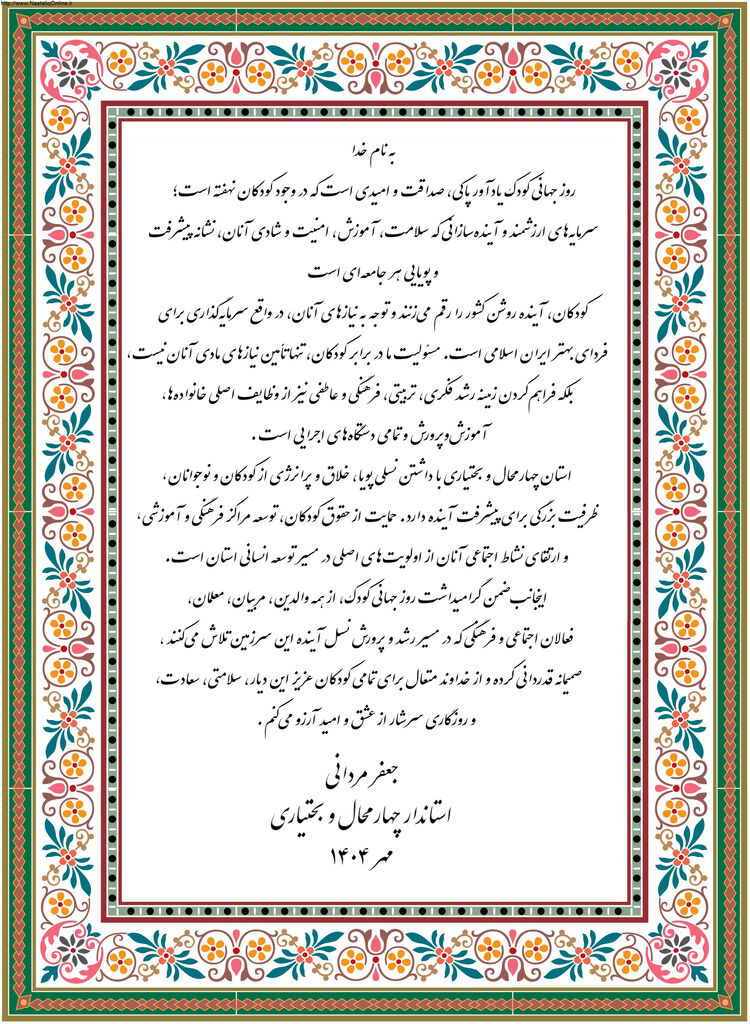 http://www.NastaliqOnline.ir
به نام خدا
روز جهانی کودک یادآور پاکی، صداقت و امیدی است که در وجود کودکان نهفته است؛
سرمایه‌های ارزشمند و آینده‌سازانی که سلامت، آموزش، امنیت و شادی آنان، نشانه پیشرفت
و پویایی هر جامعه‌ای است
کودکان، آینده روشن کشور را رقم می‌زنند و توجه به نیازهای آنان، در واقع سرمایه‌گذاری برای
فردای بهتر ایران اسلامی است. مسئولیت ما در برابر کودکان، تنها تأمین نیازهای مادی آنان نیست،
بلکه فراهم‌کردن زمینه رشد فکری، تربیتی، فرهنگی و عاطفی نیز از وظایف اصلی خانواده‌ها،
آموزش‌وپرورش و تمامی دستگاه‌های اجرایی است .
استان چهارمحال و بختیاری با داشتن نسلی پویا، خلاق و پرانرژی از کودکان و نوجوانان،
ظرفیت بزرگی برای پیشرفت آینده دارد. حمایت از حقوق کودکان، توسعه مراکز فرهنگی و آموزشی،
و ارتقای نشاط اجتماعی آنان از اولویت‌های اصلی در مسیر توسعه انسانی استان است.
اینجانب ضمن گرامیداشت روز جهانی کودک، از همه والدین، مربیان، معلمان،
فعالان اجتماعی و فرهنگی که در مسیر رشد و پرورش نسل آینده این سرزمین تلاش می‌کنند ،
صمیمانه قدردانی کرده و از خداوند متعال برای تمامی کودکان عزیز این دیار، سلامتی، سعادت،
و روزگاری سرشار از عشق و امید آرزو می‌کنم .
جعفر مردانی
استاندار چهارمحال و بختیاری
مهر ۱۴۰۴